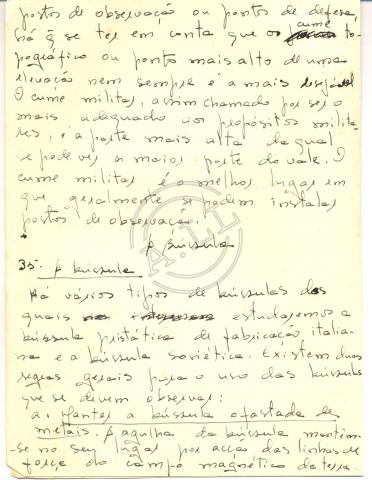 postos de observação ou pontos de defesa,
há q̃ se ter em conta que o cume to-
pográfico ou ponto mais alto de uma
elevação nem sempre é a mais
O cume militar, assim chamado por ser o
mais adequado aos propósitos milita-
res, é a parte mais alta da qual
se pode ver a maior parte do vale. O
cume militar é o melhor lugar em
que geralmente se podem instalar
postos de observação.
A Bússula
35. A bússula
Há vários tipos de bússulas das
quais estudaremos a
bússula prismática de fabricação italia-
na e a bússula soviética. Existem duas
regras gerais para o uso das bússulas
que se devem observar:
a. Manter a bússula afastada de
metais. A agulha da bússula mantém-
-se no seu lugar por acção das linhas de
força do campo magnético da terra.
A.LL